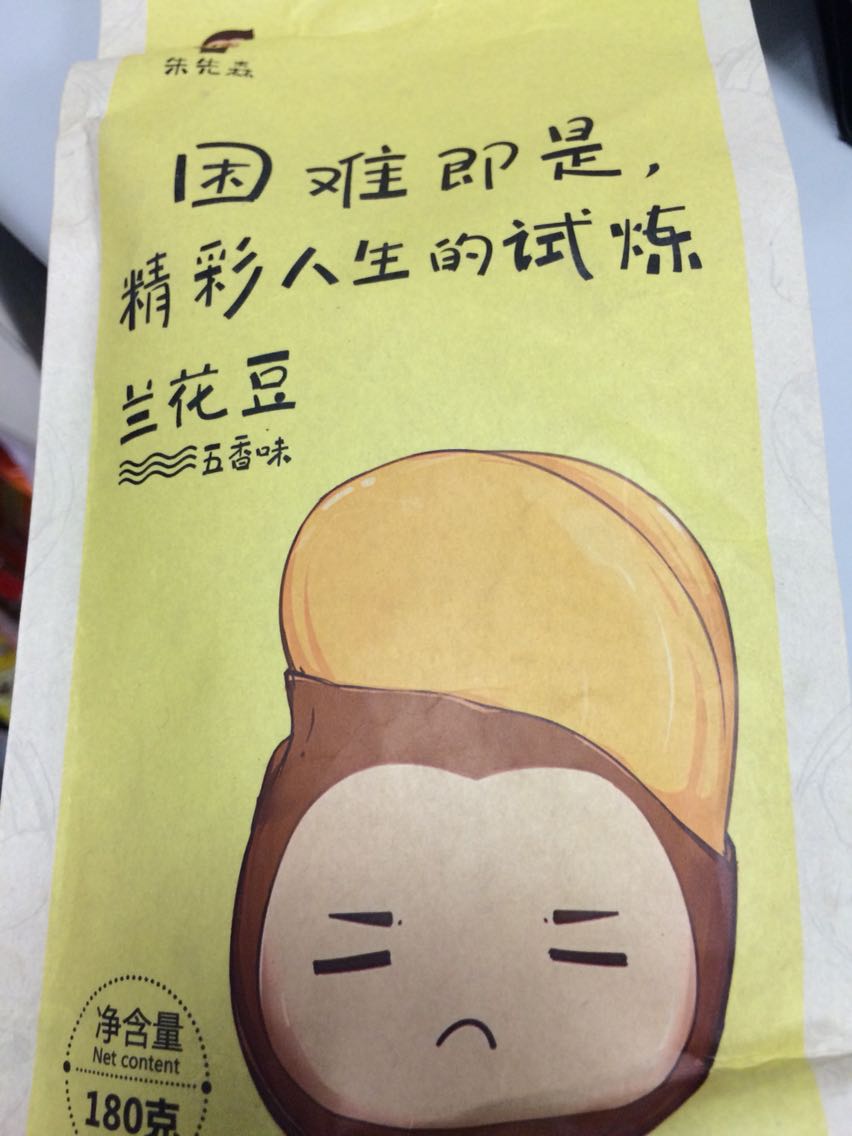 朱先森
困难即是，
精彩人生的试炼
兰花豆
五香味
净含量
Net content
180克